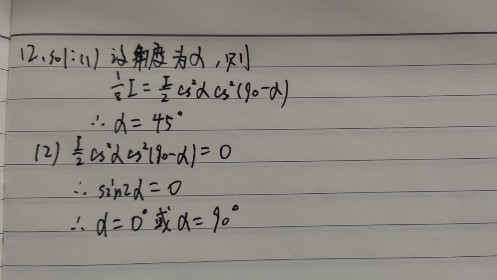 12.sol:(1) 设角度为α,则
1/8 I = I/2 cs²α cs²(90-α)
∴ α = 45°
(2) I/2 cs²α cs²(90-α) = 0
∴ sin2α = 0
∴ α = 0° 或 α = 90°